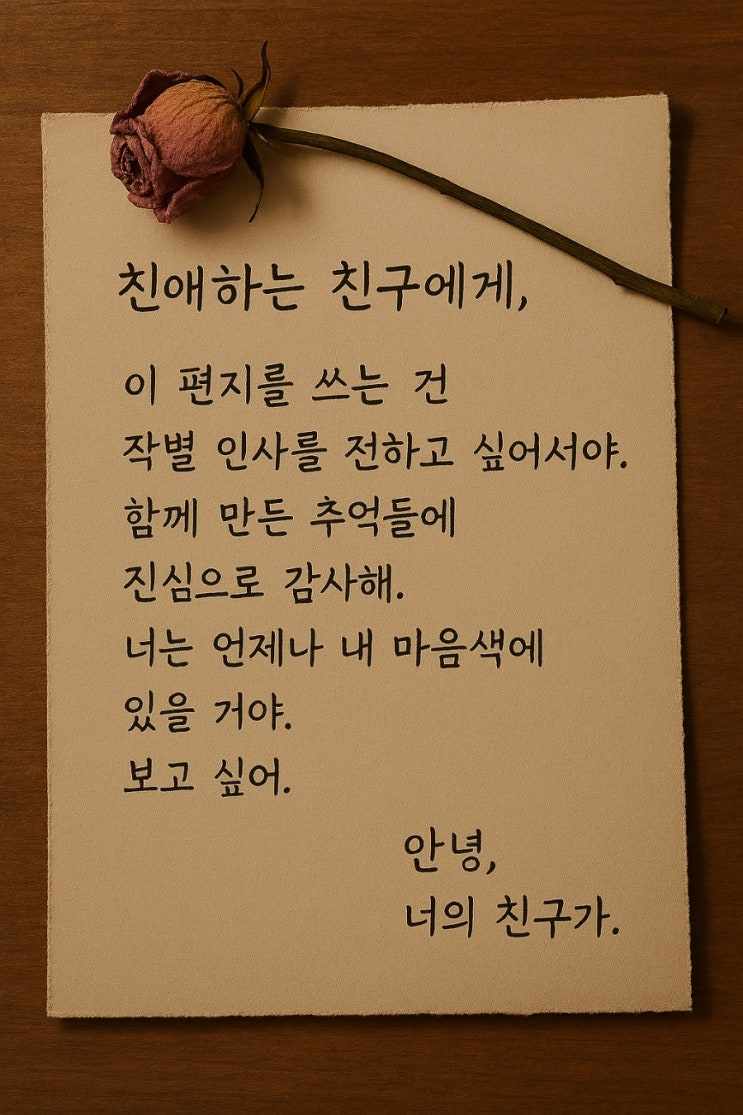 친애하는 친구에게,
이 편지를 쓰는 건
작별 인사를 전하고 싶어서야.
함께 만든 추억들에
진심으로 감사해.
너는 언제나 내 마음색에
있을 거야.
보고 싶어.
안녕,
너의 친구가.